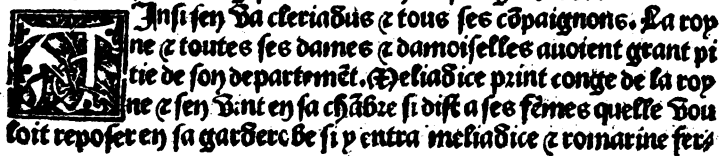 AInsi sen va cleriadus ⁊ tous ses cõpaignons. La roy
ne ⁊ toutes ses dames ⁊ damoiselles auoient grant pi
tie de son departemẽt. Meliadice print conge de la roy
ne ⁊ sen vint en sa chãbre si dist a ses fẽmes quelle vou
loit reposer en sa garderobe si y entra meliadice ⁊ romarine fer⸗